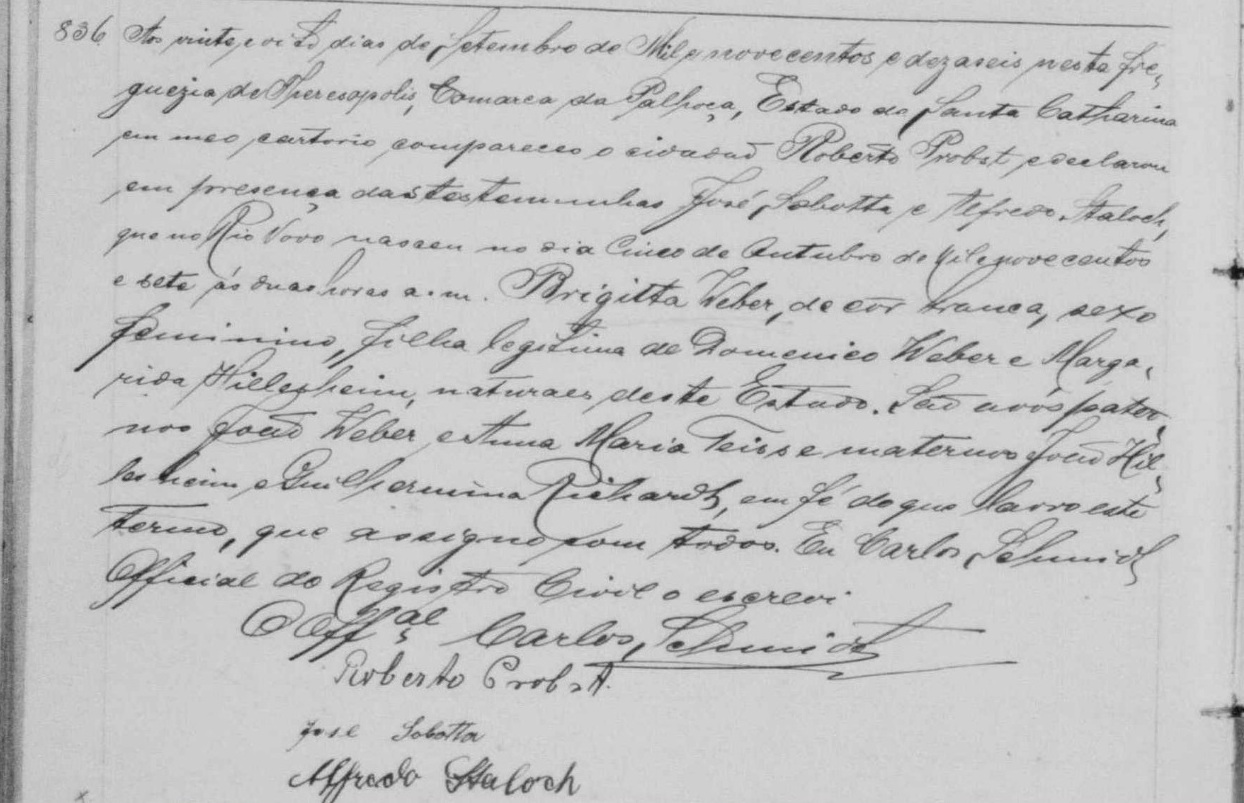 836 Aos vinte e oito dias de Setembro de Mil e novecentos e dezaseis nesta fre-
guezia de Theresopolis, Comarca da Palhoça, Estado de Santa Catharina
em meo cartorio compareceo o cidadaõ Roberto Probst e declarou
em presença das testemunhas José Sabotta e Alfredo Staloch,
que no Rio Novo nasceu no dia Cinco de Outubro de Mil e novecentos
e sete ás duas horas a.m. Brigitta Weber, de côr branca, sexo
feminino, filha legitima de Domenico Weber e Marga-
rida Hillesheim, naturaes deste Estado. Saõ avós pater-
nos Joaõ Weber e Anna Maria Teiss e maternos Joaõ Hil-
lesheim e Guilhermina Richardt, em fé do que lavro este
termo, que assigno com todos. Eu Carlos Schmidt
Official do Registro Civil o escrevi
O Off.al Carlos Schmidt
Roberto Probst.
Jose Sabotta
Alfredo Staloch